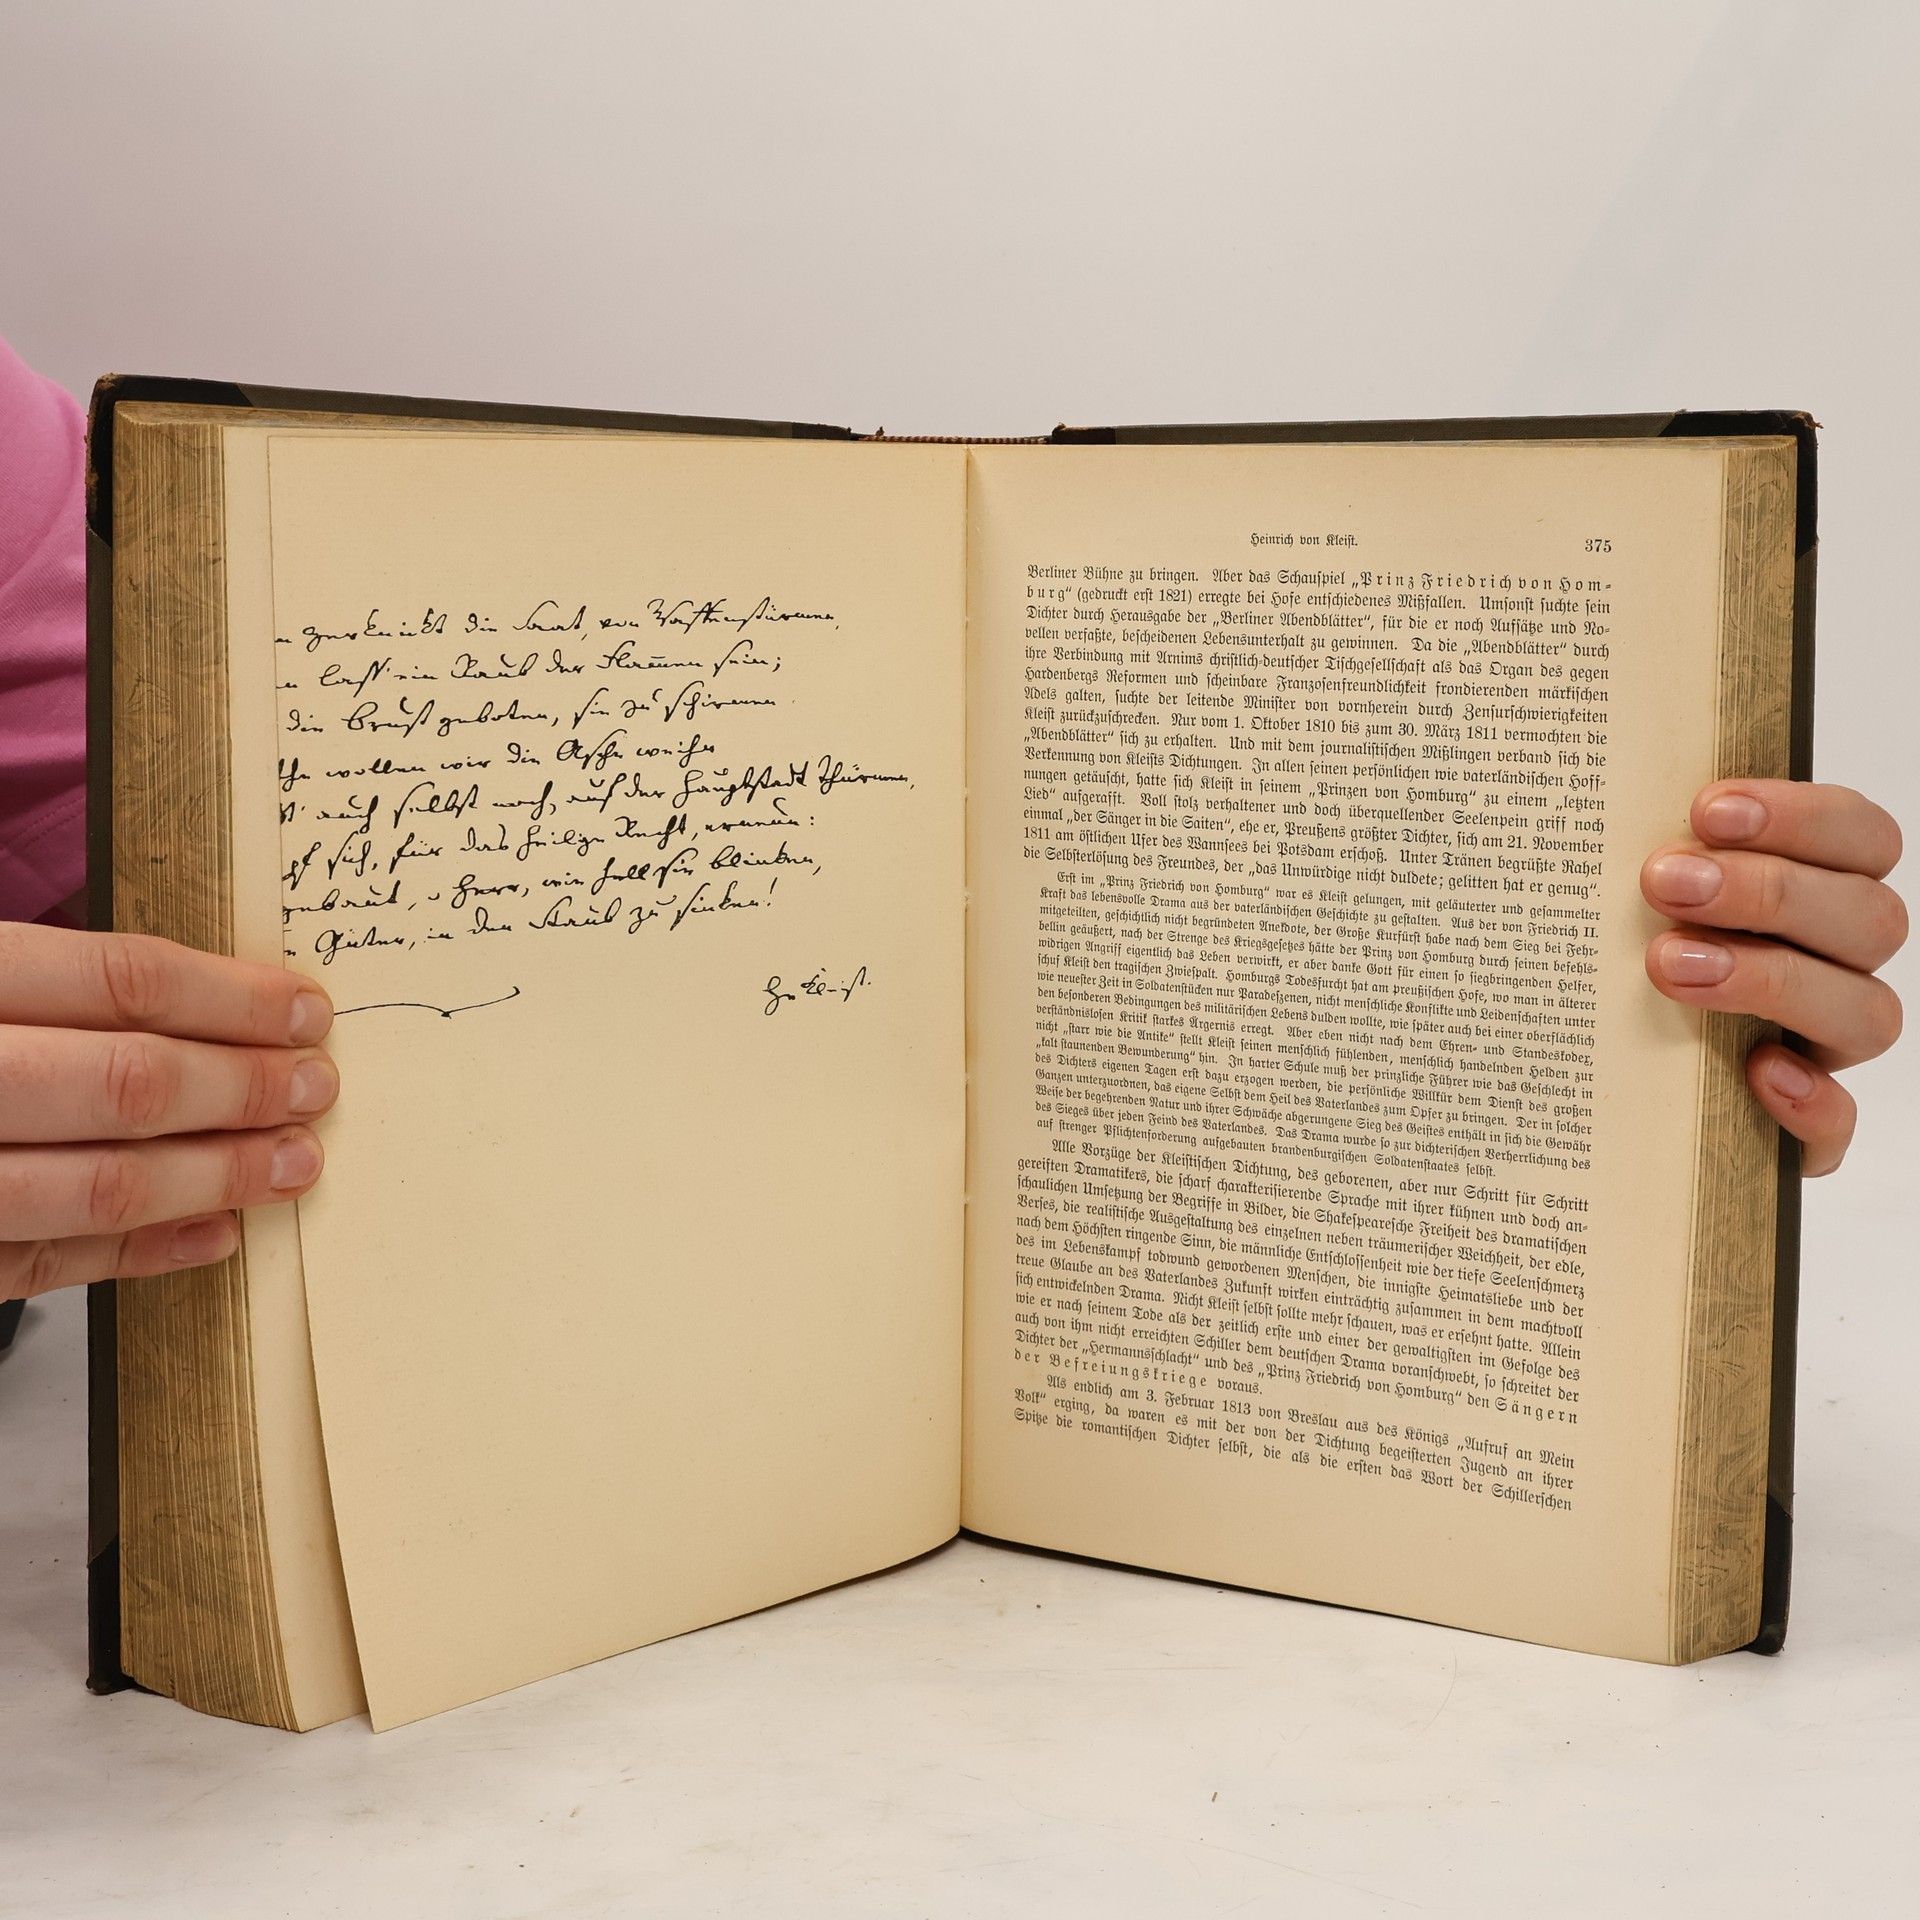 zerknickt die Saat, von Waffenstürmen,
ein Raub der Flam̄en sein;
die Brust geboten, sie zu schirmen
wollen wir die Asche weihn
auch selbst noch, auf der Hauptstadt Thürmen,
sich, für das heilge Recht,
gebaut, o Herr, wie hell sie blinken,
Güter, in den Staub zu sinken!
Kleist.
Heinrich von Kleiſt.
375
Berliner Bühne zu bringen. Aber das Schauſpiel „Prinz Friedrich von Hom-
burg“ (gedruckt erſt 1821) erregte bei Hofe entſchiedenes Mißfallen. Umſonſt ſuchte ſein
Dichter durch Herausgabe der „Berliner Abendblätter“, für die er noch Aufſätze und No-
vellen verfaßte, beſcheidenen Lebensunterhalt zu gewinnen. Da die „Abendblätter“ durch
ihre Verbindung mit Arnims chriſtlich-deutſcher Tiſchgeſellſchaft als das Organ des gegen
Hardenbergs Reformen und ſcheinbare Franzoſenfreundlichkeit frondierenden märkiſchen
Adels galten, ſuchte der leitende Miniſter von vornherein durch Zenſurſchwierigkeiten
Kleiſt zurückzuſchrecken. Nur vom 1. Oktober 1810 bis zum 30. März 1811 vermochten die
„Abendblätter“ ſich zu erhalten. Und mit dem journaliſtiſchen Mißlingen verband ſich die
Verkennung von Kleiſts Dichtungen. In allen ſeinen perſönlichen wie vaterländiſchen Hoff-
nungen getäuſcht, hatte ſich Kleiſt in ſeinem „Prinzen von Homburg“ zu einem „letzten
Lied“ aufgerafft. Voll ſtolz verhaltener und doch überquellender Seelenpein griff noch
einmal „der Sänger in die Saiten“, ehe er, Preußens größter Dichter, ſich am 21. November
1811 am öſtlichen Ufer des Wannſees bei Potsdam erſchoß. Unter Tränen begrüßte Rahel
die Selbſterlöſung des Freundes, der „das Unwürdige nicht duldete; gelitten hat er genug“.
Erſt im „Prinz Friedrich von Homburg“ war es Kleiſt gelungen, mit geläuterter und geſammelter
Kraft das lebensvolle Drama aus der vaterländiſchen Geſchichte zu geſtalten. Aus der von Friedrich II.
mitgeteilten, geſchichtlich nicht begründeten Anekdote, der Große Kurfürſt habe nach dem Sieg bei Fehr-
bellin geäußert, nach der Strenge des Kriegsgeſetzes hätte der Prinz von Homburg durch ſeinen befehls-
widrigen Angriff eigentlich das Leben verwirkt, er aber danke Gott für einen ſo ſiegbringenden Helfer,
ſchuf Kleiſt den tragiſchen Zwieſpalt. Homburgs Todesfurcht hat am preußiſchen Hofe, wo man in älterer
wie neueſter Zeit in Soldatenſtücken nur Paradeſzenen, nicht menſchliche Konflikte und Leidenſchaften unter
den beſonderen Bedingungen des militäriſchen Lebens dulden wollte, wie ſpäter auch bei einer oberflächlich
verſtändnisloſen Kritik ſtarkes Ärgernis erregt. Aber eben nicht nach dem Ehren- und Standeskodex,
nicht „ſtarr wie die Antike“ ſtellt Kleiſt ſeinen menſchlich fühlenden, menſchlich handelnden Helden zur
„kalt ſtaunenden Bewunderung“ hin. In harter Schule muß der prinzliche Führer wie das Geſchlecht in
des Dichters eigenen Tagen erſt dazu erzogen werden, die perſönliche Willkür dem Dienſt des großen
Ganzen unterzuordnen, das eigene Selbſt dem Heil des Vaterlandes zum Opfer zu bringen. Der in ſolcher
Weiſe der begehrenden Natur und ihrer Schwäche abgerungene Sieg des Geiſtes enthält in ſich die Gewähr
des Sieges über jeden Feind des Vaterlandes. Das Drama wurde ſo zur dichteriſchen Verherrlichung des
auf ſtrenger Pflichtenforderung aufgebauten brandenburgiſchen Soldatenſtaates ſelbſt.
Alle Vorzüge der Kleiſtiſchen Dichtung, des geborenen, aber nur Schritt für Schritt
gereiften Dramatikers, die ſcharf charakteriſierende Sprache mit ihrer kühnen und doch an-
ſchaulichen Umſetzung der Begriffe in Bilder, die Shakeſpeareſche Freiheit des dramatiſchen
Verſes, die realiſtiſche Ausgeſtaltung des einzelnen neben träumeriſcher Weichheit, der edle,
nach dem Höchſten ringende Sinn, die männliche Entſchloſſenheit wie der tiefe Seelenſchmerz
des im Lebenskampf todwund gewordenen Menſchen, die innigſte Heimatsliebe und der
treue Glaube an des Vaterlandes Zukunft wirken einträchtig zuſammen in dem machtvoll
ſich entwickelnden Drama. Nicht Kleiſt ſelbſt ſollte mehr ſchauen, was er erſehnt hatte. Allein
wie er nach ſeinem Tode als der zeitlich erſte und einer der gewaltigſten im Gefolge des
auch von ihm nicht erreichten Schiller dem deutſchen Drama voranſchwebt, ſo ſchreitet der
Dichter der „Hermannsſchlacht“ und des „Prinz Friedrich von Homburg“ den Sängern
der Befreiungskriege voraus.
Als endlich am 3. Februar 1813 von Breslau aus des Königs „Aufruf an Mein
Volk“ erging, da waren es mit der von der Dichtung begeiſterten Jugend an ihrer
Spitze die romantiſchen Dichter ſelbſt, die als die erſten das Wort der Schillerſchen